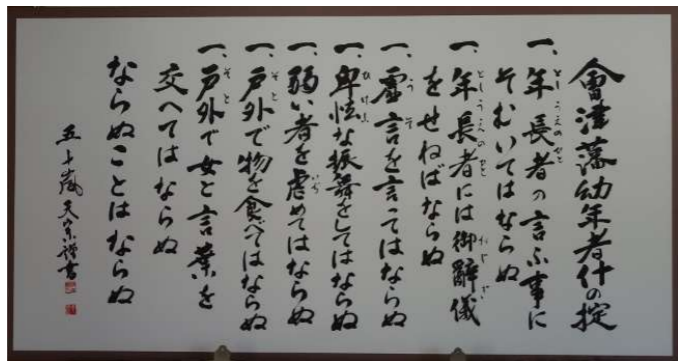 會津藩幼年者什の掟
一、年長者の言ふ事に
そむいてはならぬ
一、年長者には御辭儀
をせねばならぬ
一、虚言を言つてはならぬ
一、卑怯な振舞をしてはならぬ
一、弱い者を虐めてはならぬ
一、戸外で物を食べてはならぬ
一、戸外で女と言葉を
交へてはならぬ
ならぬことはならぬ
五十嵐天宗謹書